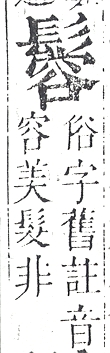 俗字舊註音
容美髮非